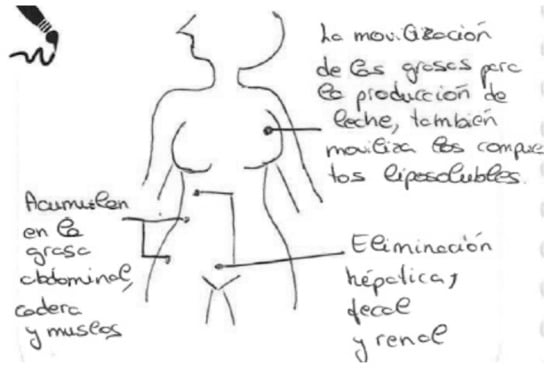 La movilización
de las grasas para
la producción de
leche, también
moviliza los compues
tos liposolubles.
Acumulan
en la
grasa
abdominal,
cadera
y muslos
Eliminación
hépatica,
fecal
y renal